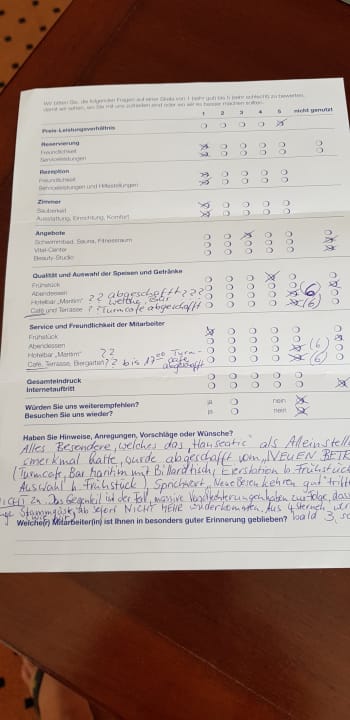 Wir bitten Sie, die folgenden Fragen auf einer Skala von 1 (sehr gut) bis 5 (sehr schlecht) zu bewerten,
damit wir sehen, wo Sie mit uns zufrieden sind oder wo wir es besser machen sollten.
1 2 3 4 5 nicht genutzt
Preis-Leistungsverhältnis
Reservierung
Freundlichkeit
Serviceleistungen
Rezeption
Freundlichkeit
Serviceleistungen und Hilfestellungen
Zimmer
Sauberkeit
Ausstattung, Einrichtung, Komfort
Angebote
Schwimmbad, Sauna, Fitnessraum
Vital-Center
Beauty-Studio
Qualität und Auswahl der Speisen und Getränke
Frühstück
Abendessen ?? abgeschafft???
Hotelbar „Maritim“ ?? welche Bar (6)
Café und Terrasse ? Turmcafe abgeschafft (6)
Service und Freundlichkeit der Mitarbeiter
Frühstück
Abendessen
Hotelbar „Maritim“ ?? (6)
Café, Terrasse, Biergarten ?? bis 17°° Turmcafe abgeschafft (6)
Gesamteindruck
Internetauftritt
Würden Sie uns weiterempfehlen? ja nein
Besuchen Sie uns wieder? ja nein
Haben Sie Hinweise, Anregungen, Vorschläge oder Wünsche?
Alles Besondere, welches das „Hanseatic“ als Alleinstell
smerkmal hatte, wurde abgeschafft vom „NEUEN BETR
(Turmcafe, Bar Maritim mit Billardtisch, Eierstation b. Frühstück
Auswahl b. Frühstück) Sprichwort „Neue Besen kehren gut“ trifft
NICHT zu. Das Gegenteil ist der Fall, massive Verschlechterungen haben zur Folge, dass
Stammgäste ab sofort NICHT MEHR wiederkommen. Aus 4 Sternen
Welche(r) Mitarbeiter(in) ist Ihnen in besonders guter Erinnerung geblieben? bald 3,